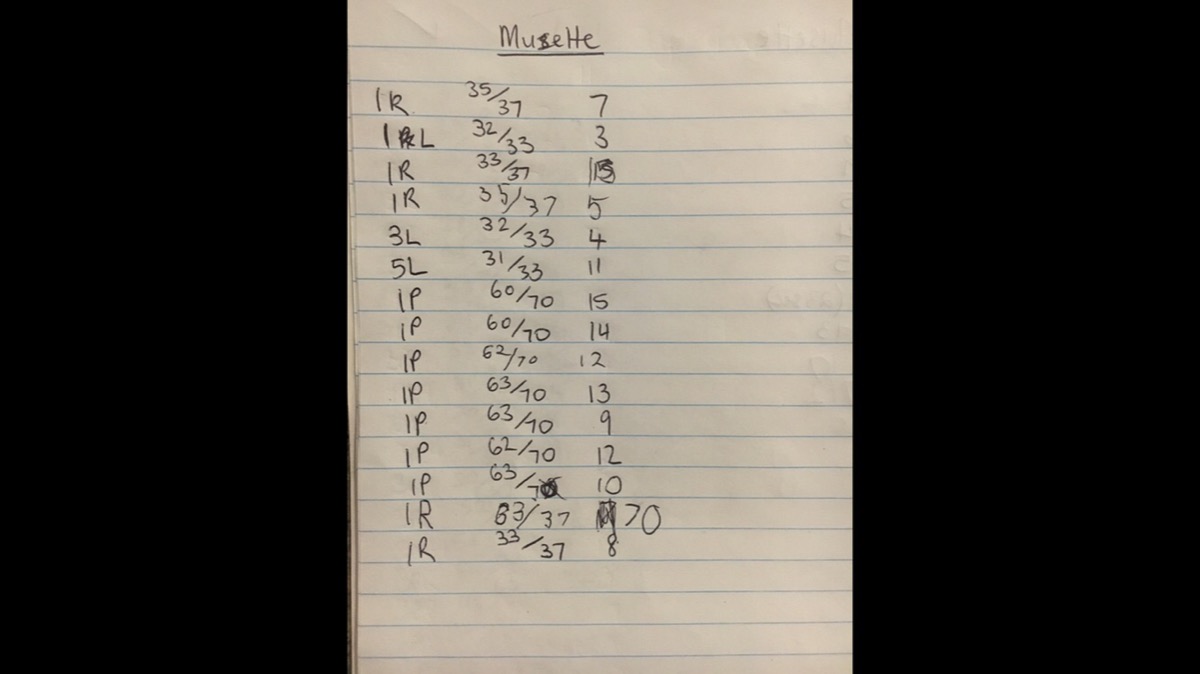 Musette
1R 35/37 7
1L 32/33 3
1R 33/37
1R 35/37 5
3L 32/33 4
5L 31/33 11
1P 60/70 15
1P 60/70 14
1P 62/70 12
1P 63/70 13
1P 63/70 9
1P 62/70 12
1P 63/70 10
1R 33/37 70
1R 33/37 8